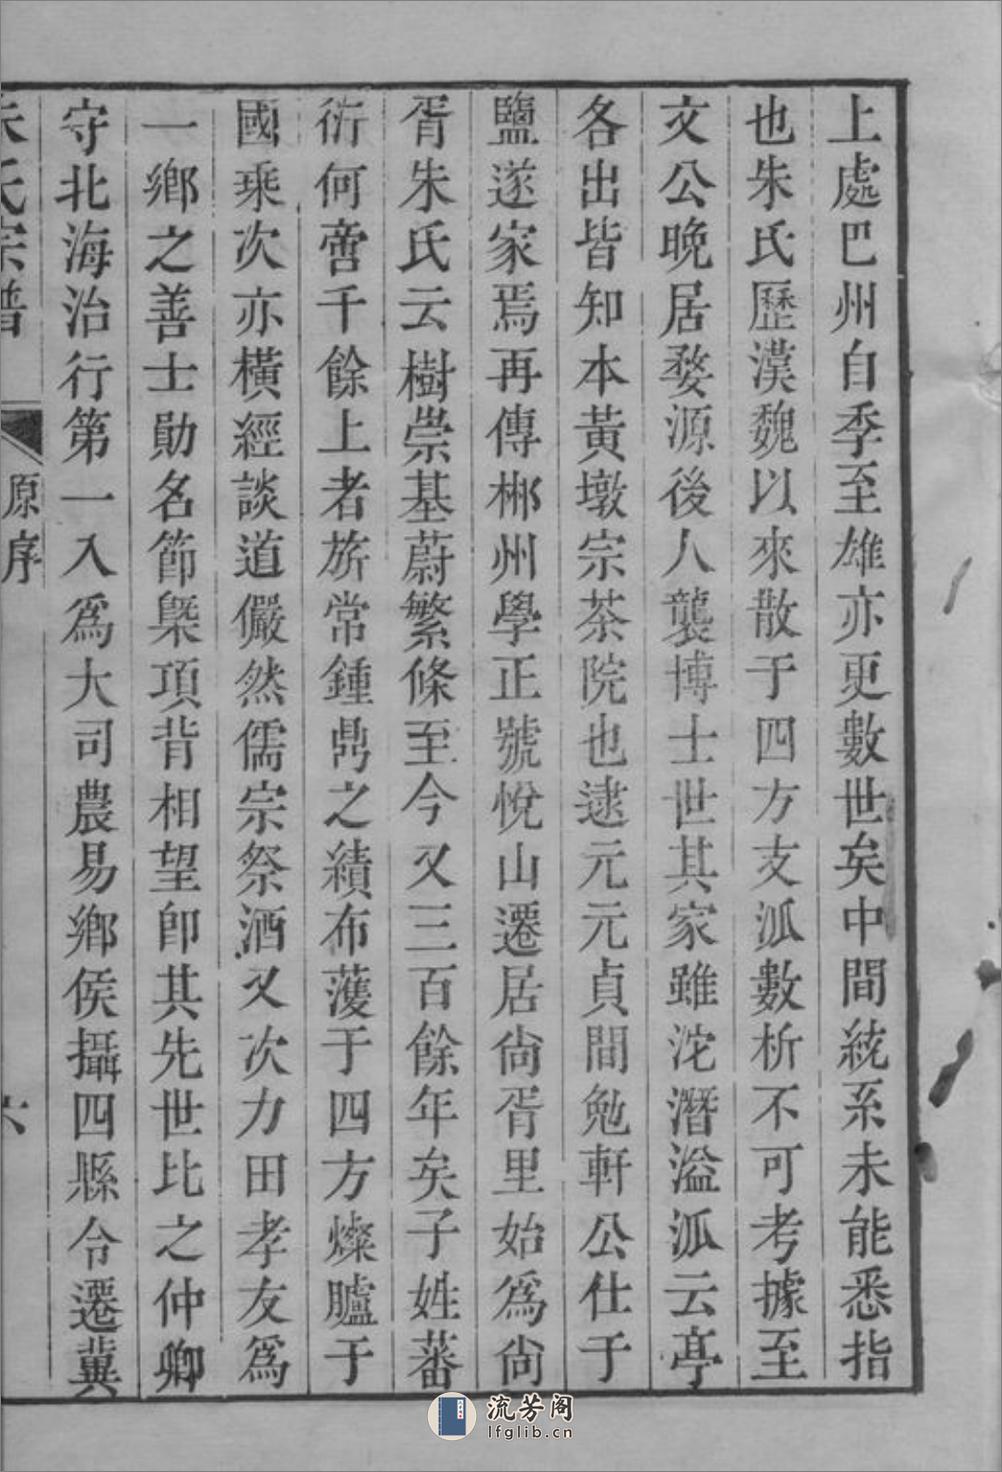 上處巴州自季至雄亦更數世矣中間統系未能悉指
也朱氏歷漢魏以來散于四方支派數析不可考據至
文公晚居婺源後人襲博士世其家雖沱潛溢派云亭
各出皆知本黃墩宗茶院也逮元元貞間勉軒公仕于
鹽遂家焉再傳郴州學正號悅山遷居尙胥里始爲尙
胥朱氏云樹崇基蔚繁條至今又三百餘年矣子姓蕃
衍何啻千餘上者旂常鍾鼎之績布濩于四方燦臚于
國乘次亦橫經談道儼然儒宗祭酒又次力田孝友爲
一鄉之善士勛名節槩項背相望卽其先世比之仲卿
守北海治行第一入爲大司農易鄉侯攝四縣令遷冀
朱氏宗譜 原序 六
流芳阁
lfglib.cn